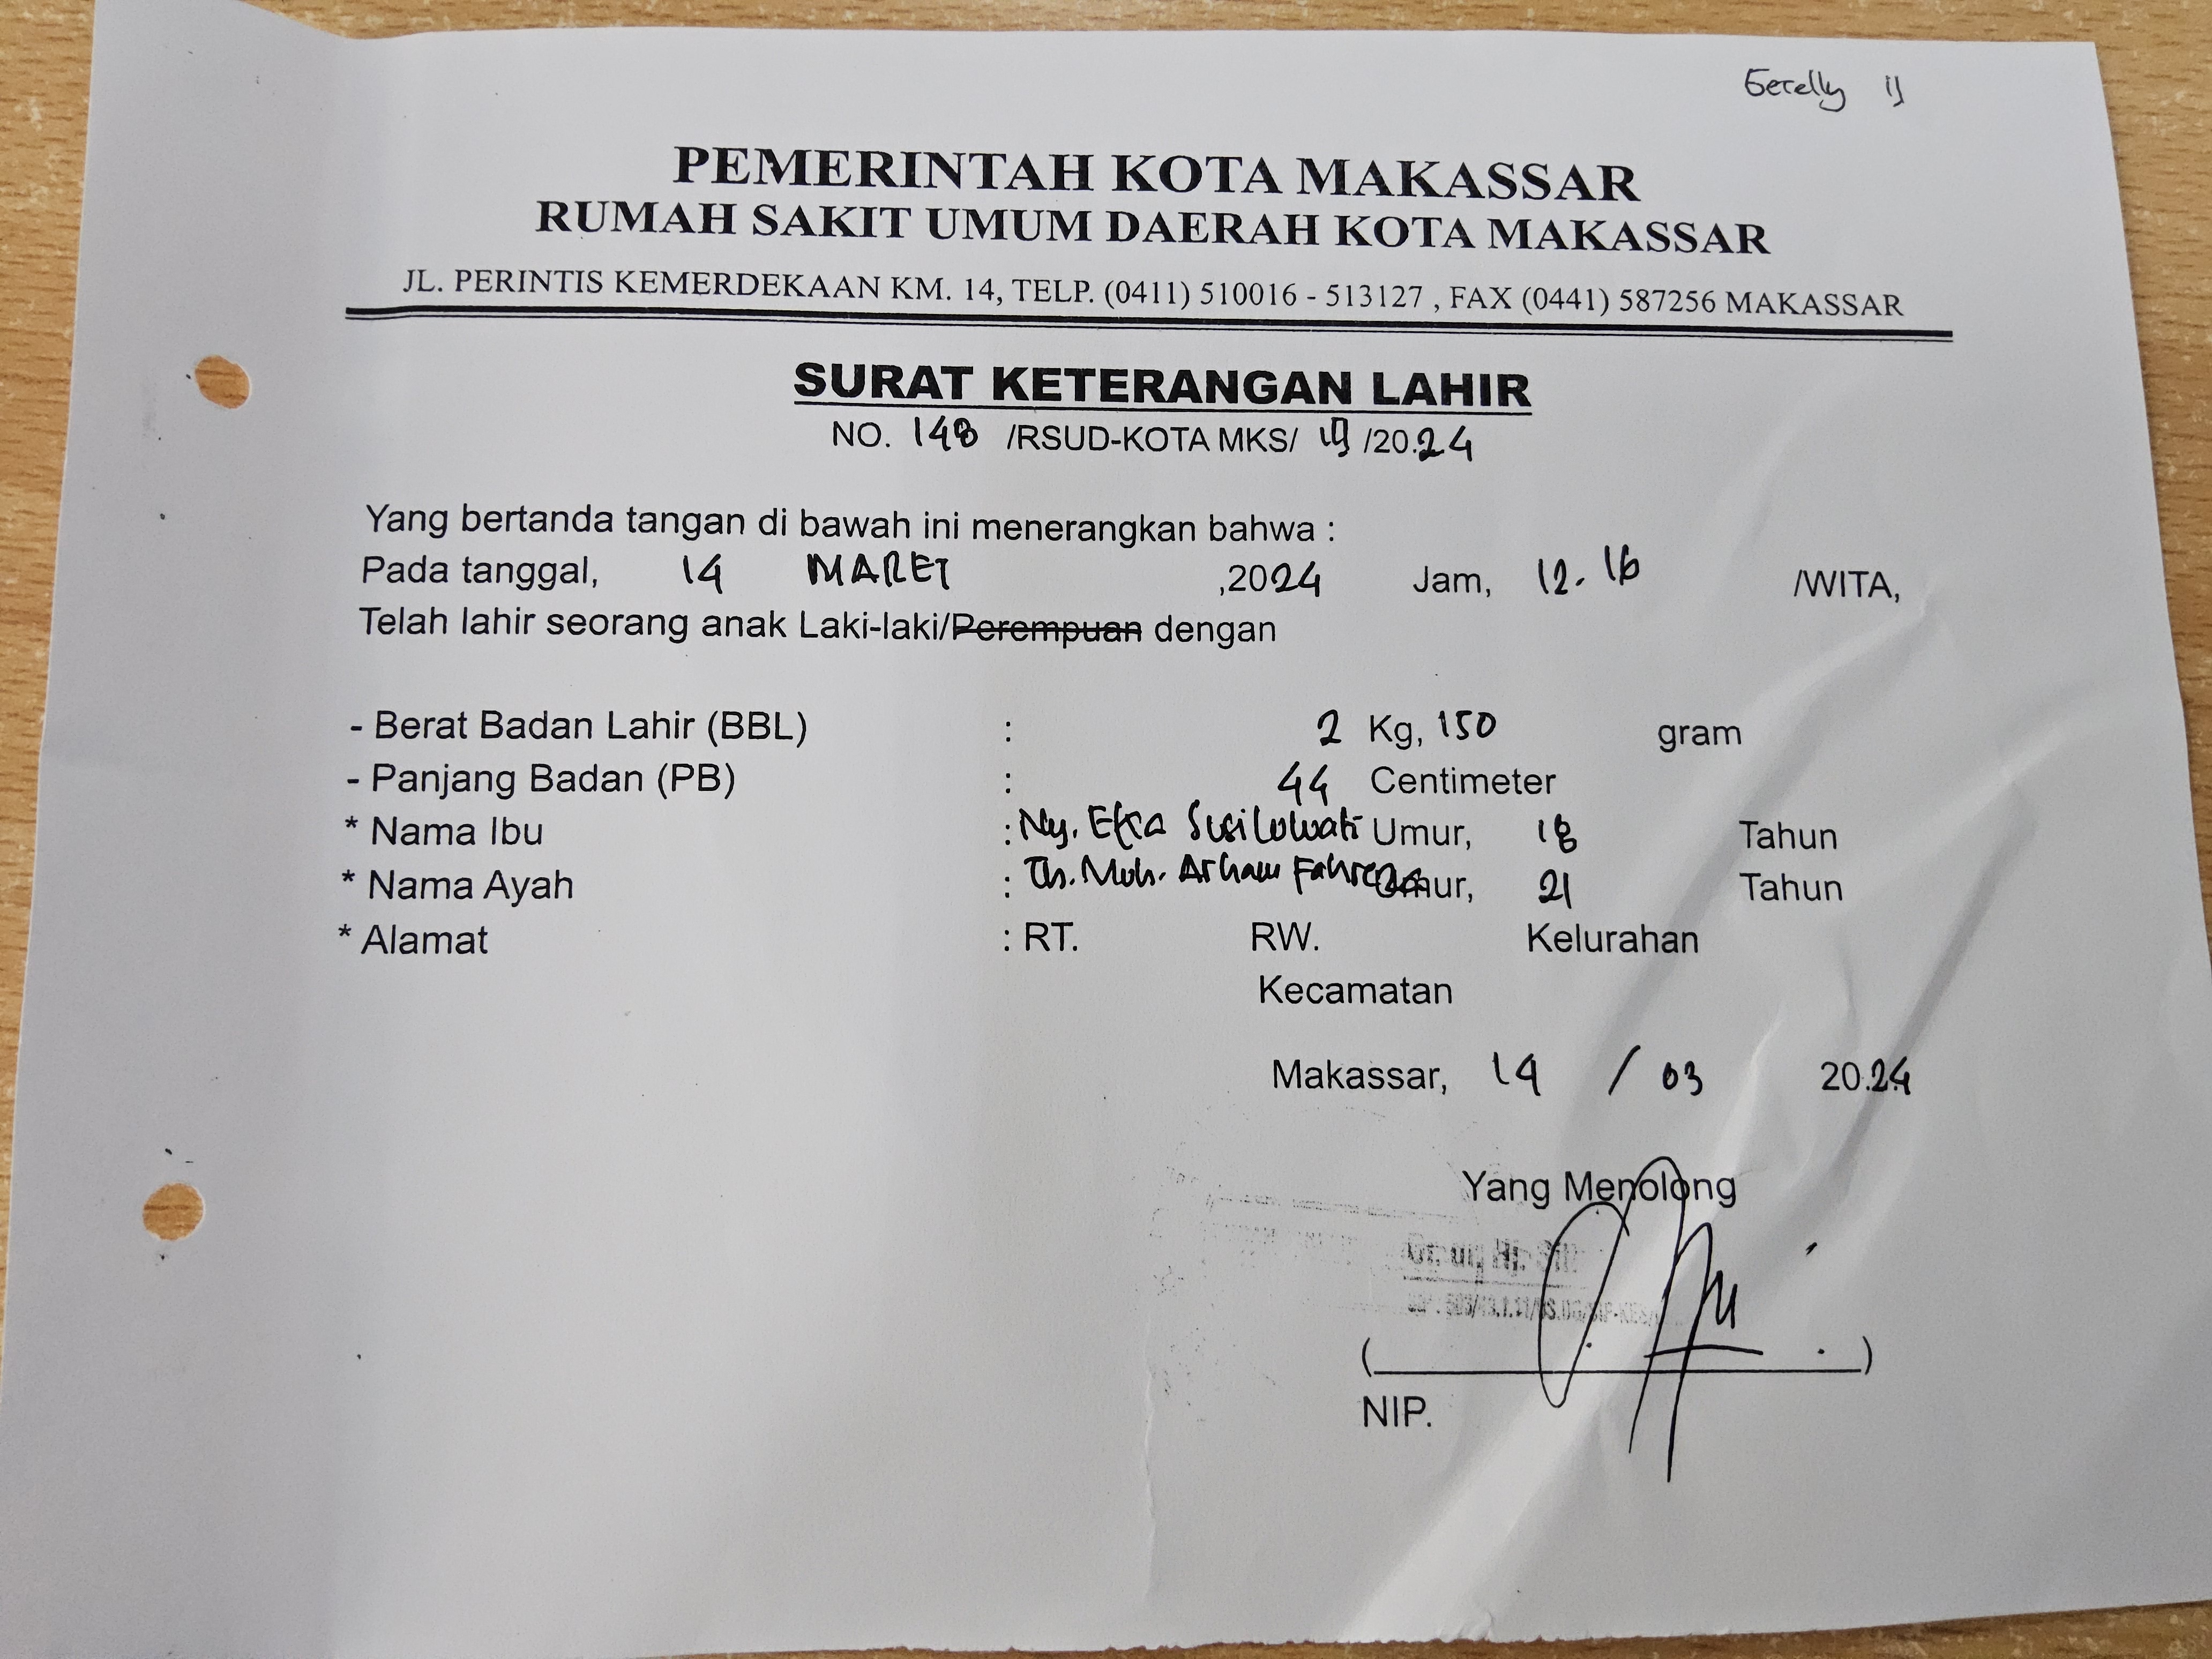 PEMERINTAH KOTA MAKASSAR
RUMAH SAKIT UMUM DAERAH KOTA MAKASSAR
JL. PERINTIS KEMERDEKAAN KM. 14, TELP. (0411) 510016 - 513127 , FAX (0441) 587256 MAKASSAR
SURAT KETERANGAN LAHIR
NO. 148 /RSUD-KOTA MKS/ /20.24
Yang bertanda tangan di bawah ini menerangkan bahwa :
Pada tanggal, 14 MARET ,2024 Jam, 12.16 /WITA,
Telah lahir seorang anak Laki-laki/Perempuan dengan
- Berat Badan Lahir (BBL) : 2 Kg, 150 gram
- Panjang Badan (PB) : 44 Centimeter
* Nama Ibu : Ny. Susilowati Umur, 18 Tahun
* Nama Ayah : Moh. Arham Umur, 21 Tahun
* Alamat : RT. RW. Kelurahan
Kecamatan
Makassar, 14 / 03 20.24
Yang Menolong
( )
NIP.